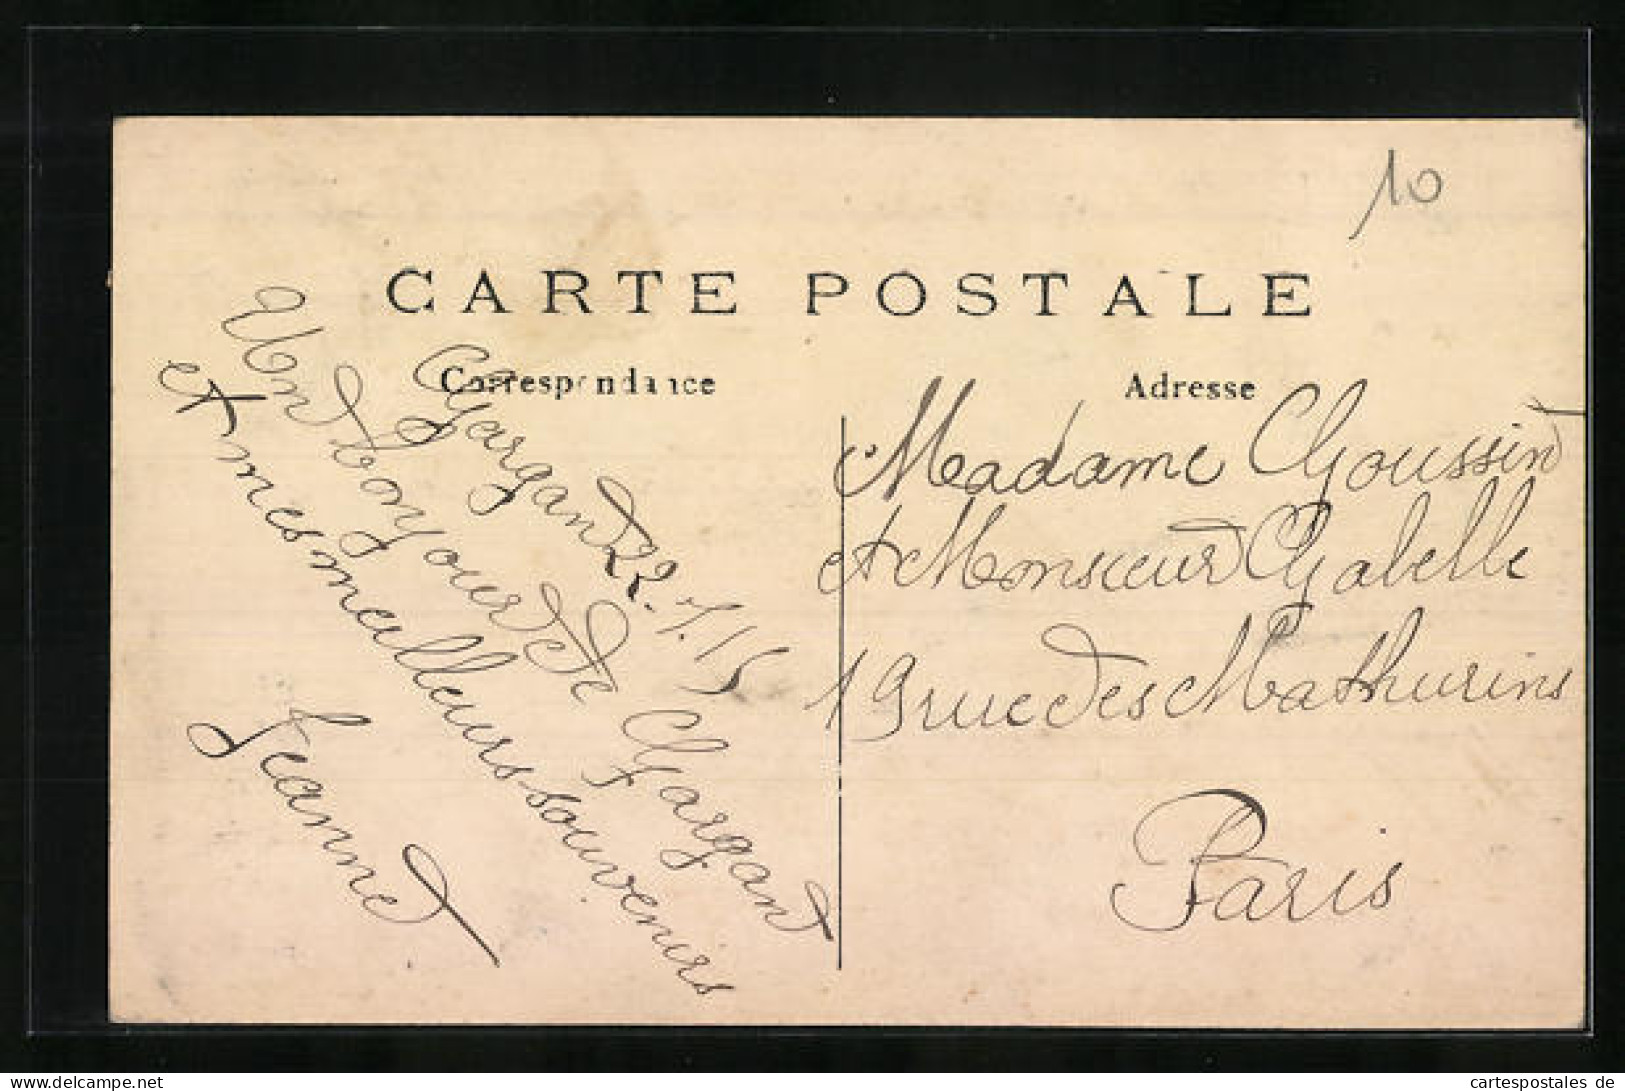 10
CARTE POSTALE
Correspondance
Adresse
Gargan 22.7.15
Un bonjour de Gargan
et mes meilleurs souvenirs
Jeanne
Madame Goussin
et Monsieur Gabelle
19 rue des Mathurins
Paris
cartespostales de